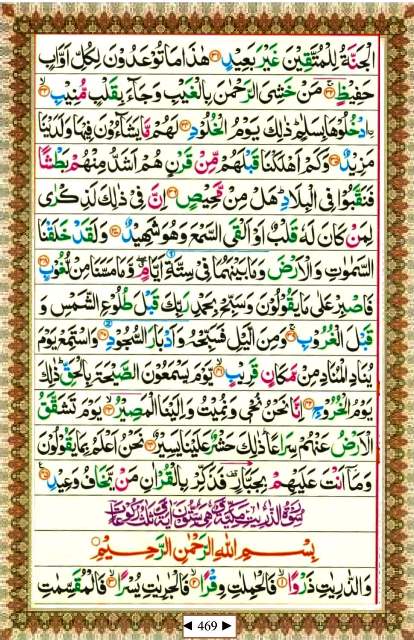 الْجَنَّةُ لِلْمُتَّقِيْنَ غَيْرَ بَعِيْدٍ ﴿۳۱﴾ هٰذَا مَا تُوْعَدُوْنَ لِكُلِّ اَوَّابٍ
حَفِيْظٍ ﴿۳۲﴾ مَنْ خَشِيَ الرَّحْمٰنَ بِالْغَيْبِ وَجَآءَ بِقَلْبٍ مُّنِيْبٍ ﴿۳۳﴾
ادْخُلُوْهَا بِسَلٰمٍ ذٰلِكَ يَوْمُ الْخُلُوْدِ ﴿۳۴﴾ لَهُمْ مَّا يَشَآءُوْنَ فِيْهَا وَلَدَيْنَا
مَزِيْدٌ ﴿۳۵﴾ وَكَمْ اَهْلَكْنَا قَبْلَهُمْ مِّنْ قَرْنٍ هُمْ اَشَدُّ مِنْهُمْ بَطْشًا
فَنَقَّبُوْا فِي الْبِلَادِ هَلْ مِنْ مَّحِيْصٍ ﴿۳۶﴾ اِنَّ فِيْ ذٰلِكَ لَذِكْرٰى
لِمَنْ كَانَ لَهٗ قَلْبٌ اَوْ اَلْقَى السَّمْعَ وَهُوَ شَهِيْدٌ ﴿۳۷﴾ وَلَقَدْ خَلَقْنَا
السَّمٰوٰتِ وَالْاَرْضَ وَمَا بَيْنَهُمَا فِيْ سِتَّةِ اَيَّامٍ وَّمَا مَسَّنَا مِنْ لُّغُوْبٍ ﴿۳۸﴾
فَاصْبِرْ عَلٰى مَا يَقُوْلُوْنَ وَسَبِّحْ بِحَمْدِ رَبِّكَ قَبْلَ طُلُوْعِ الشَّمْسِ وَ
قَبْلَ الْغُرُوْبِ ﴿۳۹﴾ وَمِنَ الَّيْلِ فَسَبِّحْهُ وَاَدْبَارَ السُّجُوْدِ ﴿۴۰﴾ وَاسْتَمِعْ يَوْمَ
يُنَادِ الْمُنَادِ مِنْ مَّكَانٍ قَرِيْبٍ ﴿۴۱﴾ يَّوْمَ يَسْمَعُوْنَ الصَّيْحَةَ بِالْحَقِّ ذٰلِكَ
يَوْمُ الْخُرُوْجِ ﴿۴۲﴾ اِنَّا نَحْنُ نُحْيٖ وَنُمِيْتُ وَاِلَيْنَا الْمَصِيْرُ ﴿۴۳﴾ يَوْمَ تَشَقَّقُ
الْاَرْضُ عَنْهُمْ سِرَاعًا ذٰلِكَ حَشْرٌ عَلَيْنَا يَسِيْرٌ ﴿۴۴﴾ نَحْنُ اَعْلَمُ بِمَا يَقُوْلُوْنَ
وَمَآ اَنْتَ عَلَيْهِمْ بِجَبَّارٍ فَذَكِّرْ بِالْقُرْاٰنِ مَنْ يَّخَافُ وَعِيْدِ ﴿۴۵﴾
سُوْرَةُ الذّٰرِيٰتِ مَكِّيَّةٌ وَّهِيَ سِتُّوْنَ اٰيَةً وَّثَلٰثُ رُكُوْعَاتٍ
بِسْمِ اللّٰهِ الرَّحْمٰنِ الرَّحِيْمِ
وَالذّٰرِيٰتِ ذَرْوًا ﴿۱﴾ فَالْحٰمِلٰتِ وِقْرًا ﴿۲﴾ فَالْجٰرِيٰتِ يُسْرًا ﴿۳﴾ فَالْمُقَسِّمٰتِ
◄ 469 ►